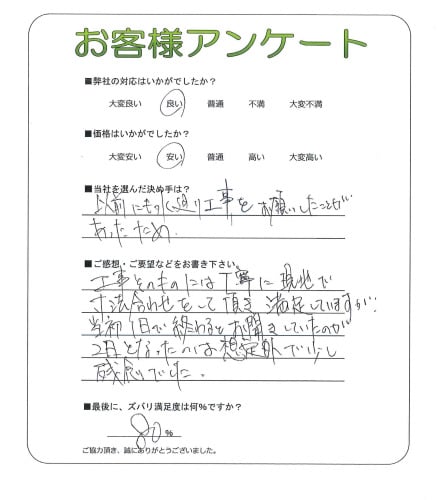 お客様アンケート
■弊社の対応はいかがでしたか？
大変良い 良い 普通 不満 大変不満
■価格はいかがでしたか？
大変安い 安い 普通 高い 大変高い
■当社を選んだ決め手は？
以前にも水廻り工事をお願いしたことが
あったため.
■ご感想・ご要望などをお書き下さい。
工事そのものには丁寧に現地で
寸法合わせをして頂き満足していますが、
当初1日で終わるとお聞きしていたのが
2日となったのは想定外で少し
残念でした。
■最後に、ズバリ満足度は何％ですか？
80％
ご協力頂き、誠にありがとうございました。